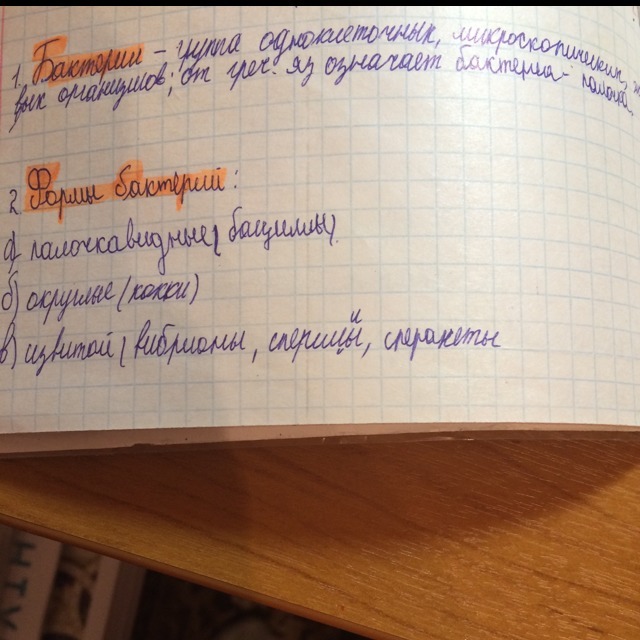 1. Бактерии – группа одноклеточных, микроскопических
вых организмов; от греч. яз означает бактериа - палочка.
2 Формы бактерий:
а) палочкавидные (бациллы).
б) округлые (кокки)
в) извитой (вибрионы, сперицы, сперахеты
и
НТУ